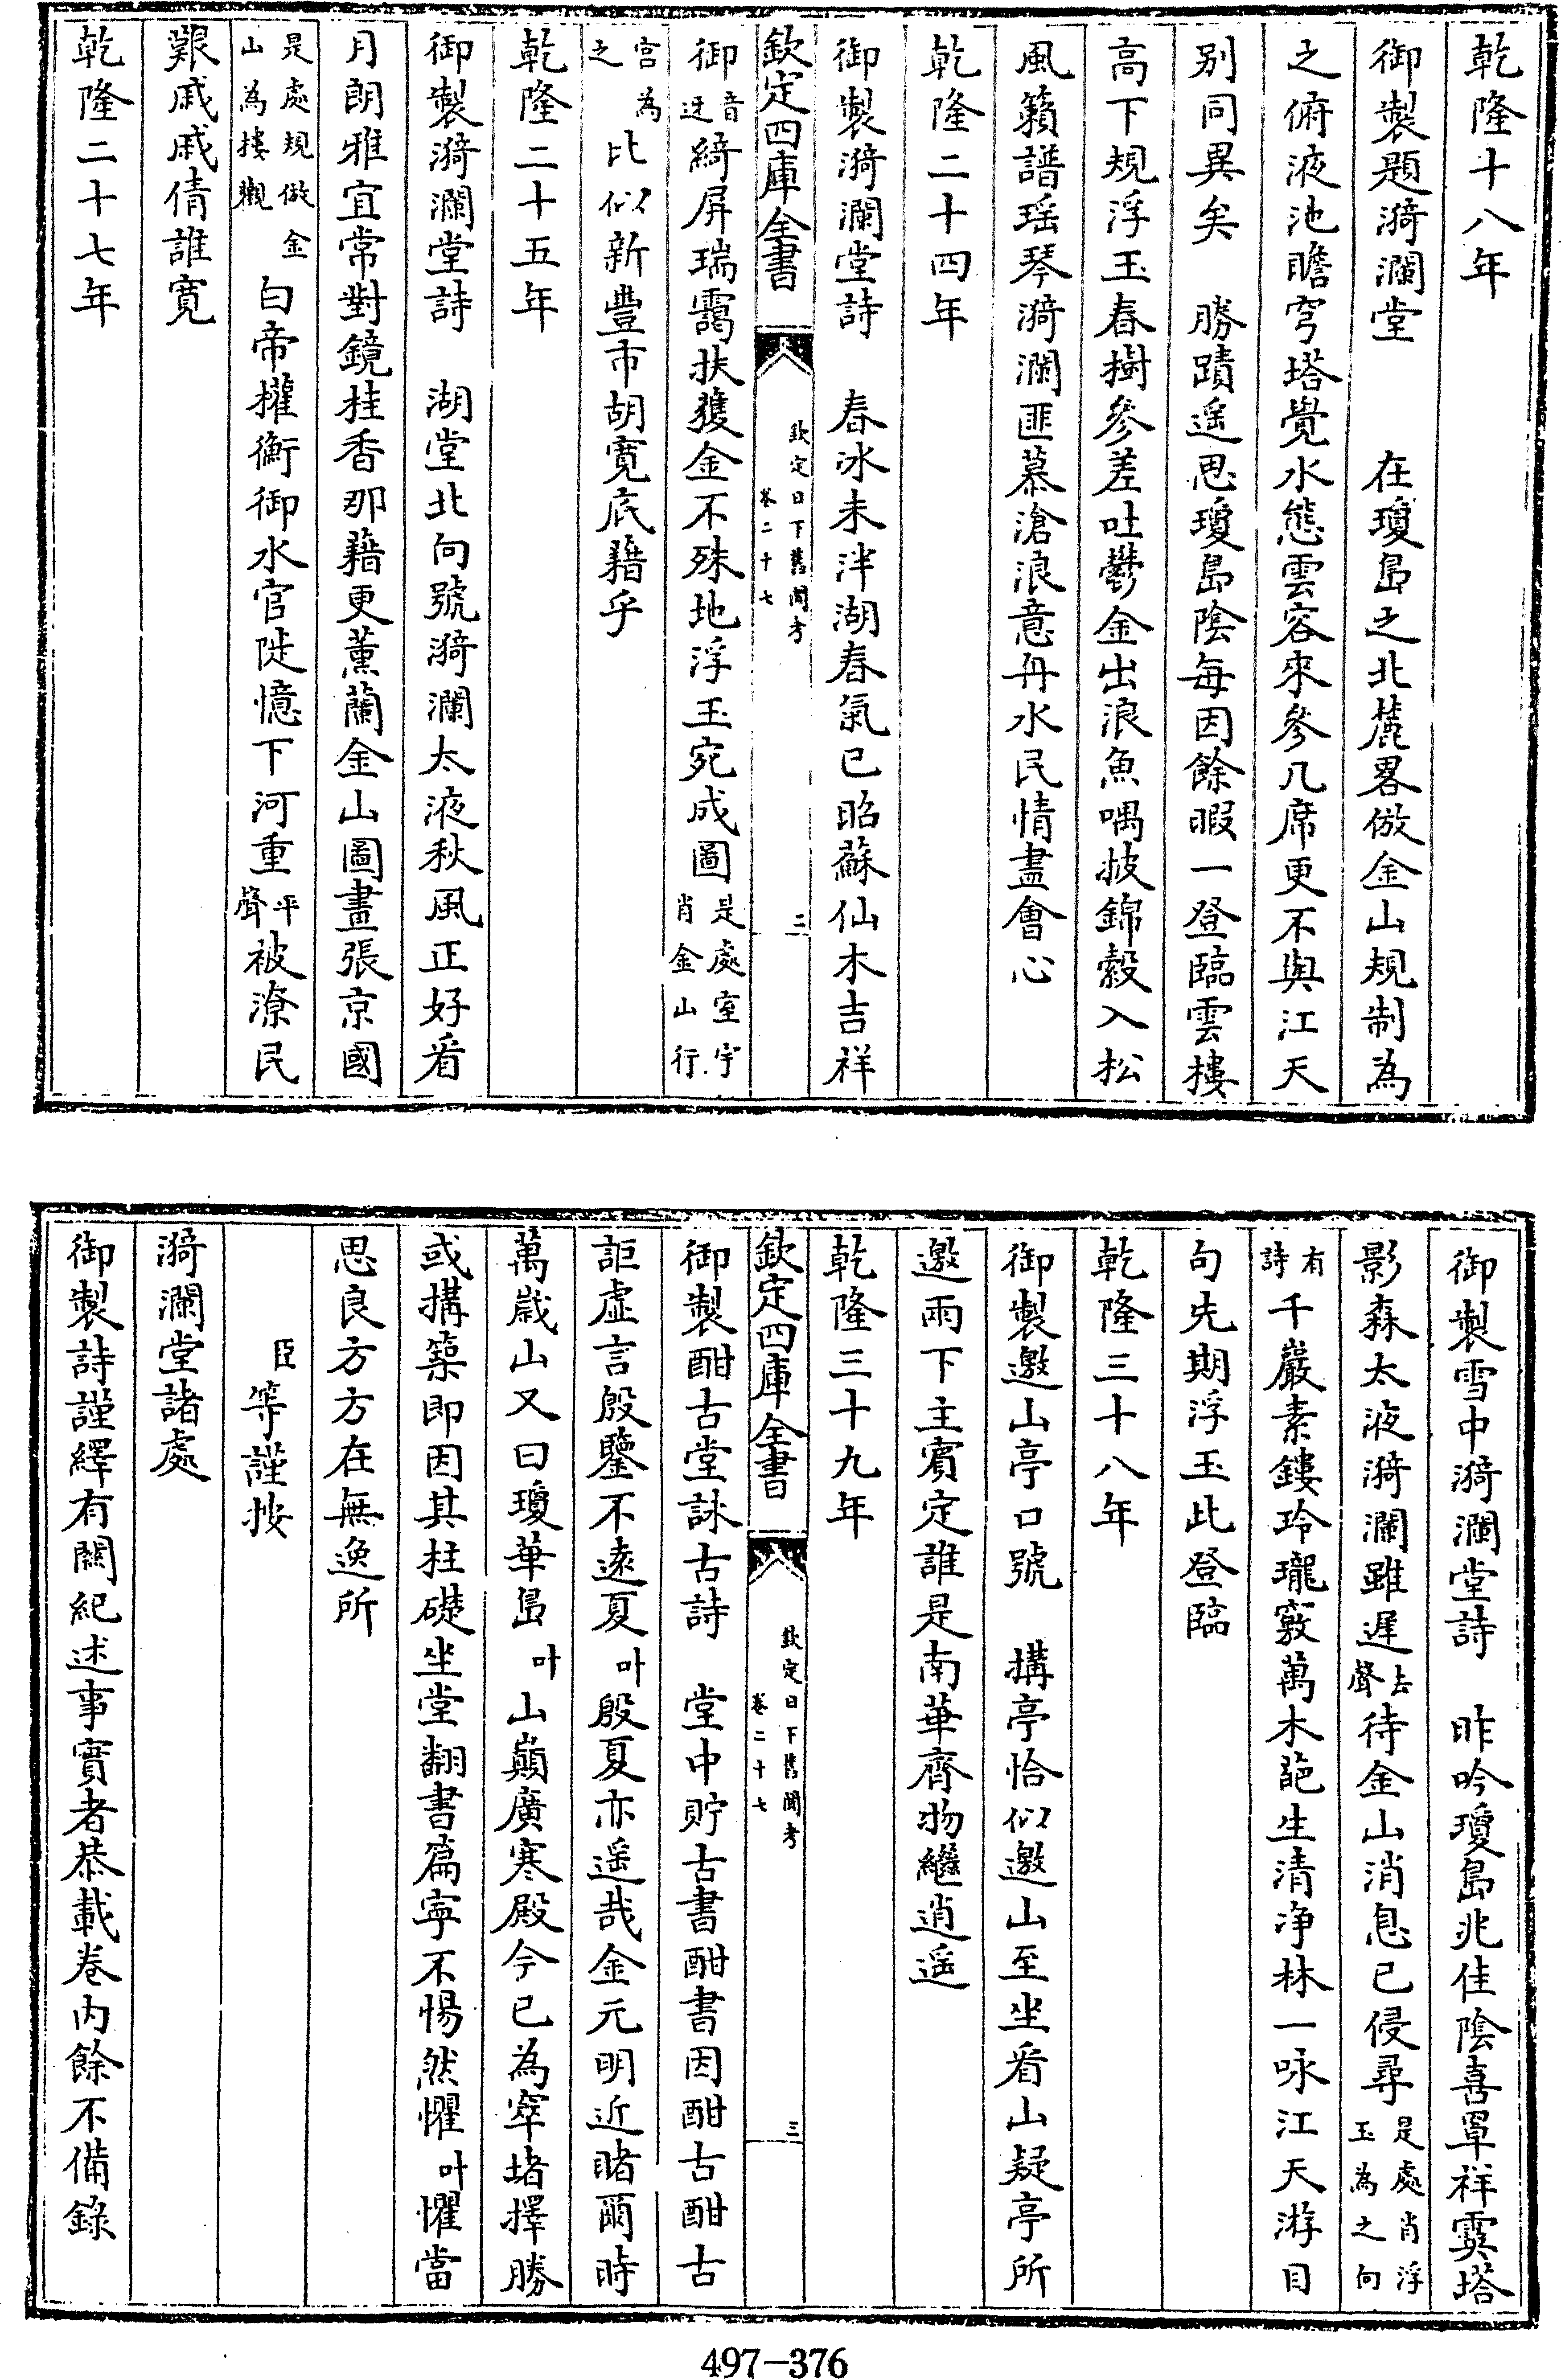 乾隆十八年
御製題漪瀾堂　在瓊島之北麓畧倣金山規制為
之俯液池瞻穹塔覺水態雲容來參几席更不與江天
别同異矣　勝蹟遥思瓊島陰每因餘暇一登臨雲樓
高下規浮玉春樹參差吐鬱金出浪魚喁披錦縠入松
風籟譜瑶琴漪瀾匪慕滄浪意丹水民情盡會心
乾隆二十四年
御製漪瀾堂詩　春冰未泮湖春氣已昭蘇仙木吉祥
欽定四庫全書　欽定日下舊聞考卷二十七　二
御音迓綺屏瑞靄扶獲金不殊地浮玉宛成圖是處室宇肖金山行
宫為之比似新豐市胡寛底藉乎
乾隆二十五年
御製漪瀾堂詩　湖堂北向號漪瀾太液秋風正好看
月朗雅宜常對鏡桂香那藉更薰蘭金山圖畫張京國
是處規倣金山為樓觀白帝權衡御水官陡憶下河重平聲被潦民
艱戚戚倩誰寛
乾隆二十七年
御製雪中漪瀾堂詩　昨吟瓊島兆佳陰喜罩祥霙塔
影森太液漪瀾雖遲去聲待金山消息已侵尋是處肖浮玉為之向
有詩千巖素鏤玲瓏竅萬木葩生清净林一咏江天游目
句先期浮玉此登臨
乾隆三十八年
御製邀山亭口號　搆亭恰似邀山至坐看山疑亭所
邀兩下主賓定誰是南華齊物繼逍遥
乾隆三十九年
欽定四庫全書　欽定日下舊聞考卷二十七　三
御製酣古堂詠古詩　堂中貯古書酣書因酣古酣古
詎虚言殷鑒不遠夏叶殷夏亦遥哉金元明近睹爾時
萬歲山又曰瓊華島叶山巔廣寒殿今已為窣堵擇勝
或搆築即因其柱礎坐堂翻書篇寧不惕然懼叶懼當
思良方方在無逸所
臣等謹按
漪瀾堂諸處
御製詩謹繹有闗紀述事實者恭載卷内餘不備錄
497-376